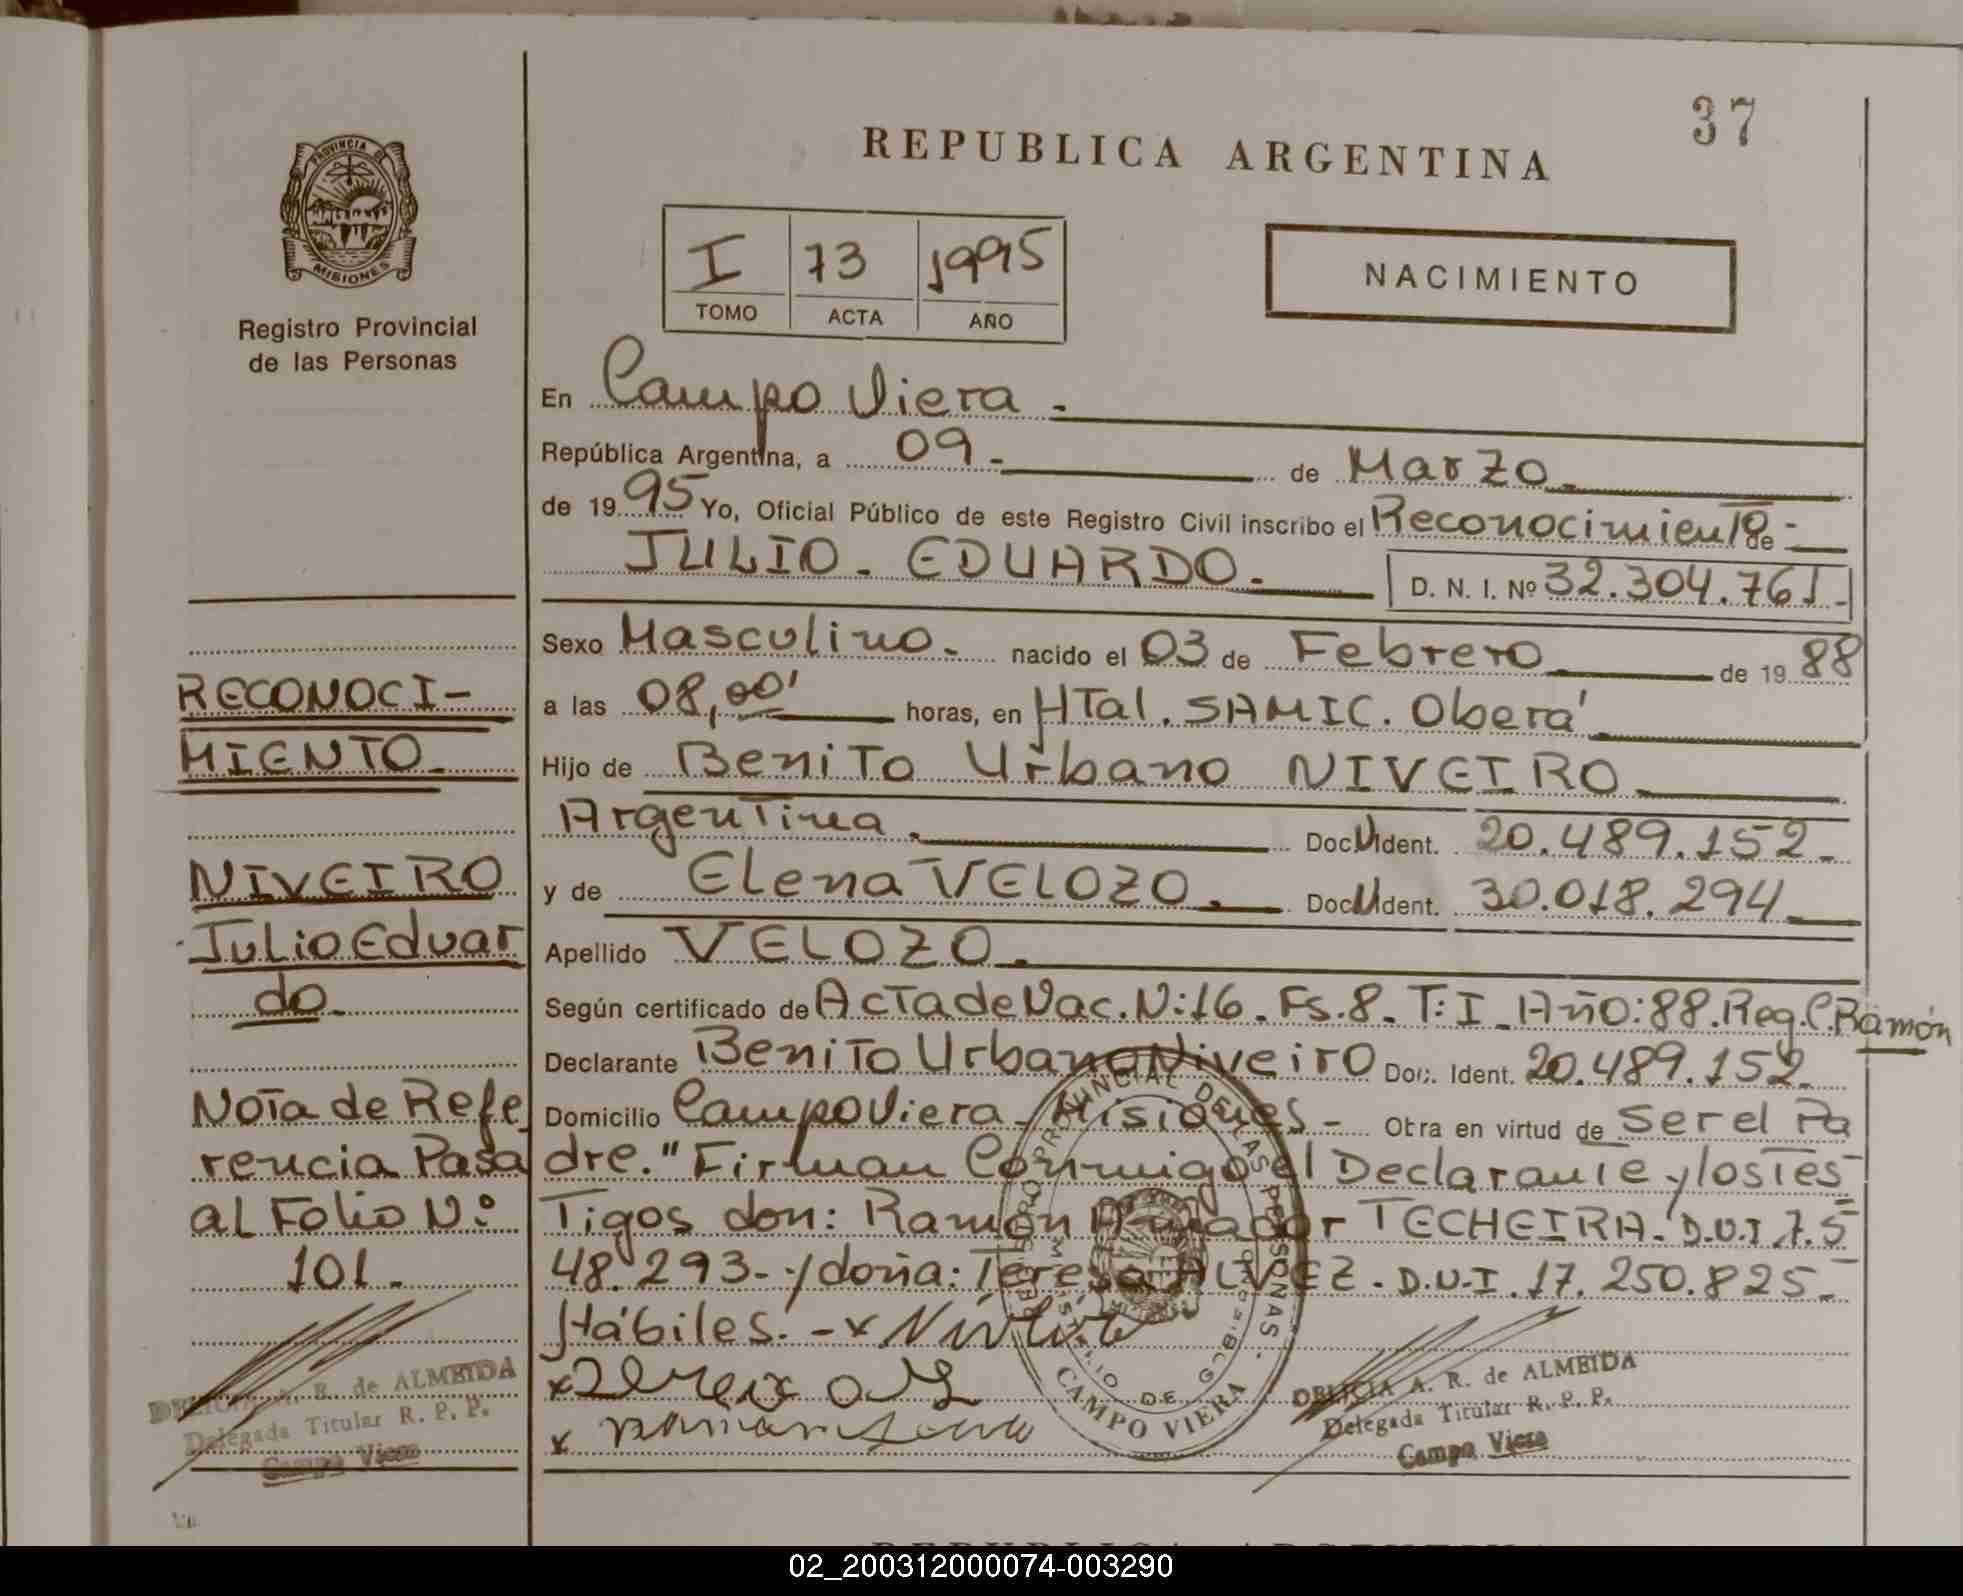 37
REPUBLICA ARGENTINA
PROVINCIA DE
MISIONES
Registro Provincial
de las Personas
I 73 1995
TOMO ACTA AÑO
NACIMIENTO
En Campo Viera -
República Argentina, a 09.- de Marzo.-
de 1995 Yo, Oficial Público de este Registro Civil inscribo el Reconocimiento de -
JULIO. EDUARDO.- D. N. I. Nº 32.304.761.-
Sexo Masculino.- nacido el 03 de Febrero de 1988
a las 08,00' horas, en HTal. SAMIC. Oberá
Hijo de Benito Urbano NIVEIRO
Argentina. DocU Ident. 20.489.152.-
y de Elena VELOZO. DocU Ident. 30.018.294
Apellido VELOZO.
Según certificado de Acta de Nac. N:16. Fs.8. T:I. Año:88. Reg.C.Ramón
Declarante Benito Urbano Niveiro Doc. Ident. 20.489.152.
Domicilio Campo Viera - Misiones - Obra en virtud de Ser el Pa
dre." Firman Conmigo el Declarante y los Tes
Tigos don: Ramón Amador TECHEIRA. D.U.I 7.5
48.293.- y doña: Teresa ALVEZ. D.U.I. 17.250.825.-
Hábiles. -x
x
x
RECONOCI-
MIENTO.
NIVEIRO
Julio Eduar
do.
Nota de Refe
rencia Pasa
al Folio Nº
101.
DELICIA A. R. de ALMEIDA
Delegada Titular R. P. P.
Campo Viera
REGISTRO PROVINCIAL DE LAS PERSONAS -
CAMPO VIERA
DELICIA A. R. de ALMEIDA
Delegada Titular R. P. P.
Campo Viera
REPUBLICA ARGENTINA
02_200312000074-003290